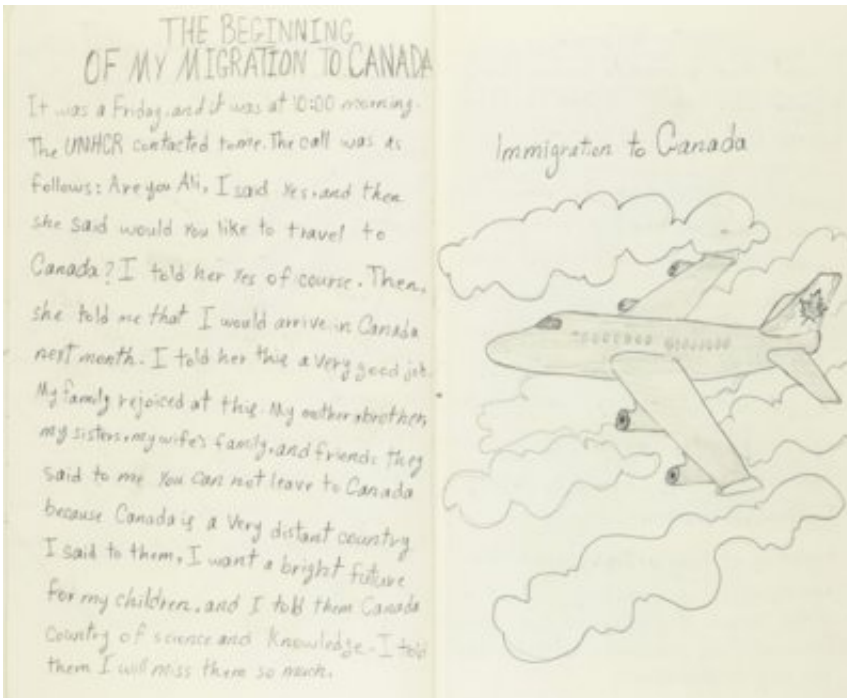 THE BEGINNING
OF MY MIGRATION TO CANADA
It was a Friday, and it was at 10:00 morning.
The UNHCR contacted to me. The call was as
follows: Are you Ali, I said Yes, and then
she said would You like to travel to
Canada? I told her Yes of course. Then,
she told me that I would arrive in Canada
next month. I told her this a very good job.
My family rejoiced at this. My mother, brother,
my sisters, my wife's family, and friends they
said to me You can not leave to Canada
because Canada is a Very distant country
I said to them, I want a bright future
for my children, and I told them Canada
country of science and Knowledge. I told
them I will miss them so much.
Immigration to Canada